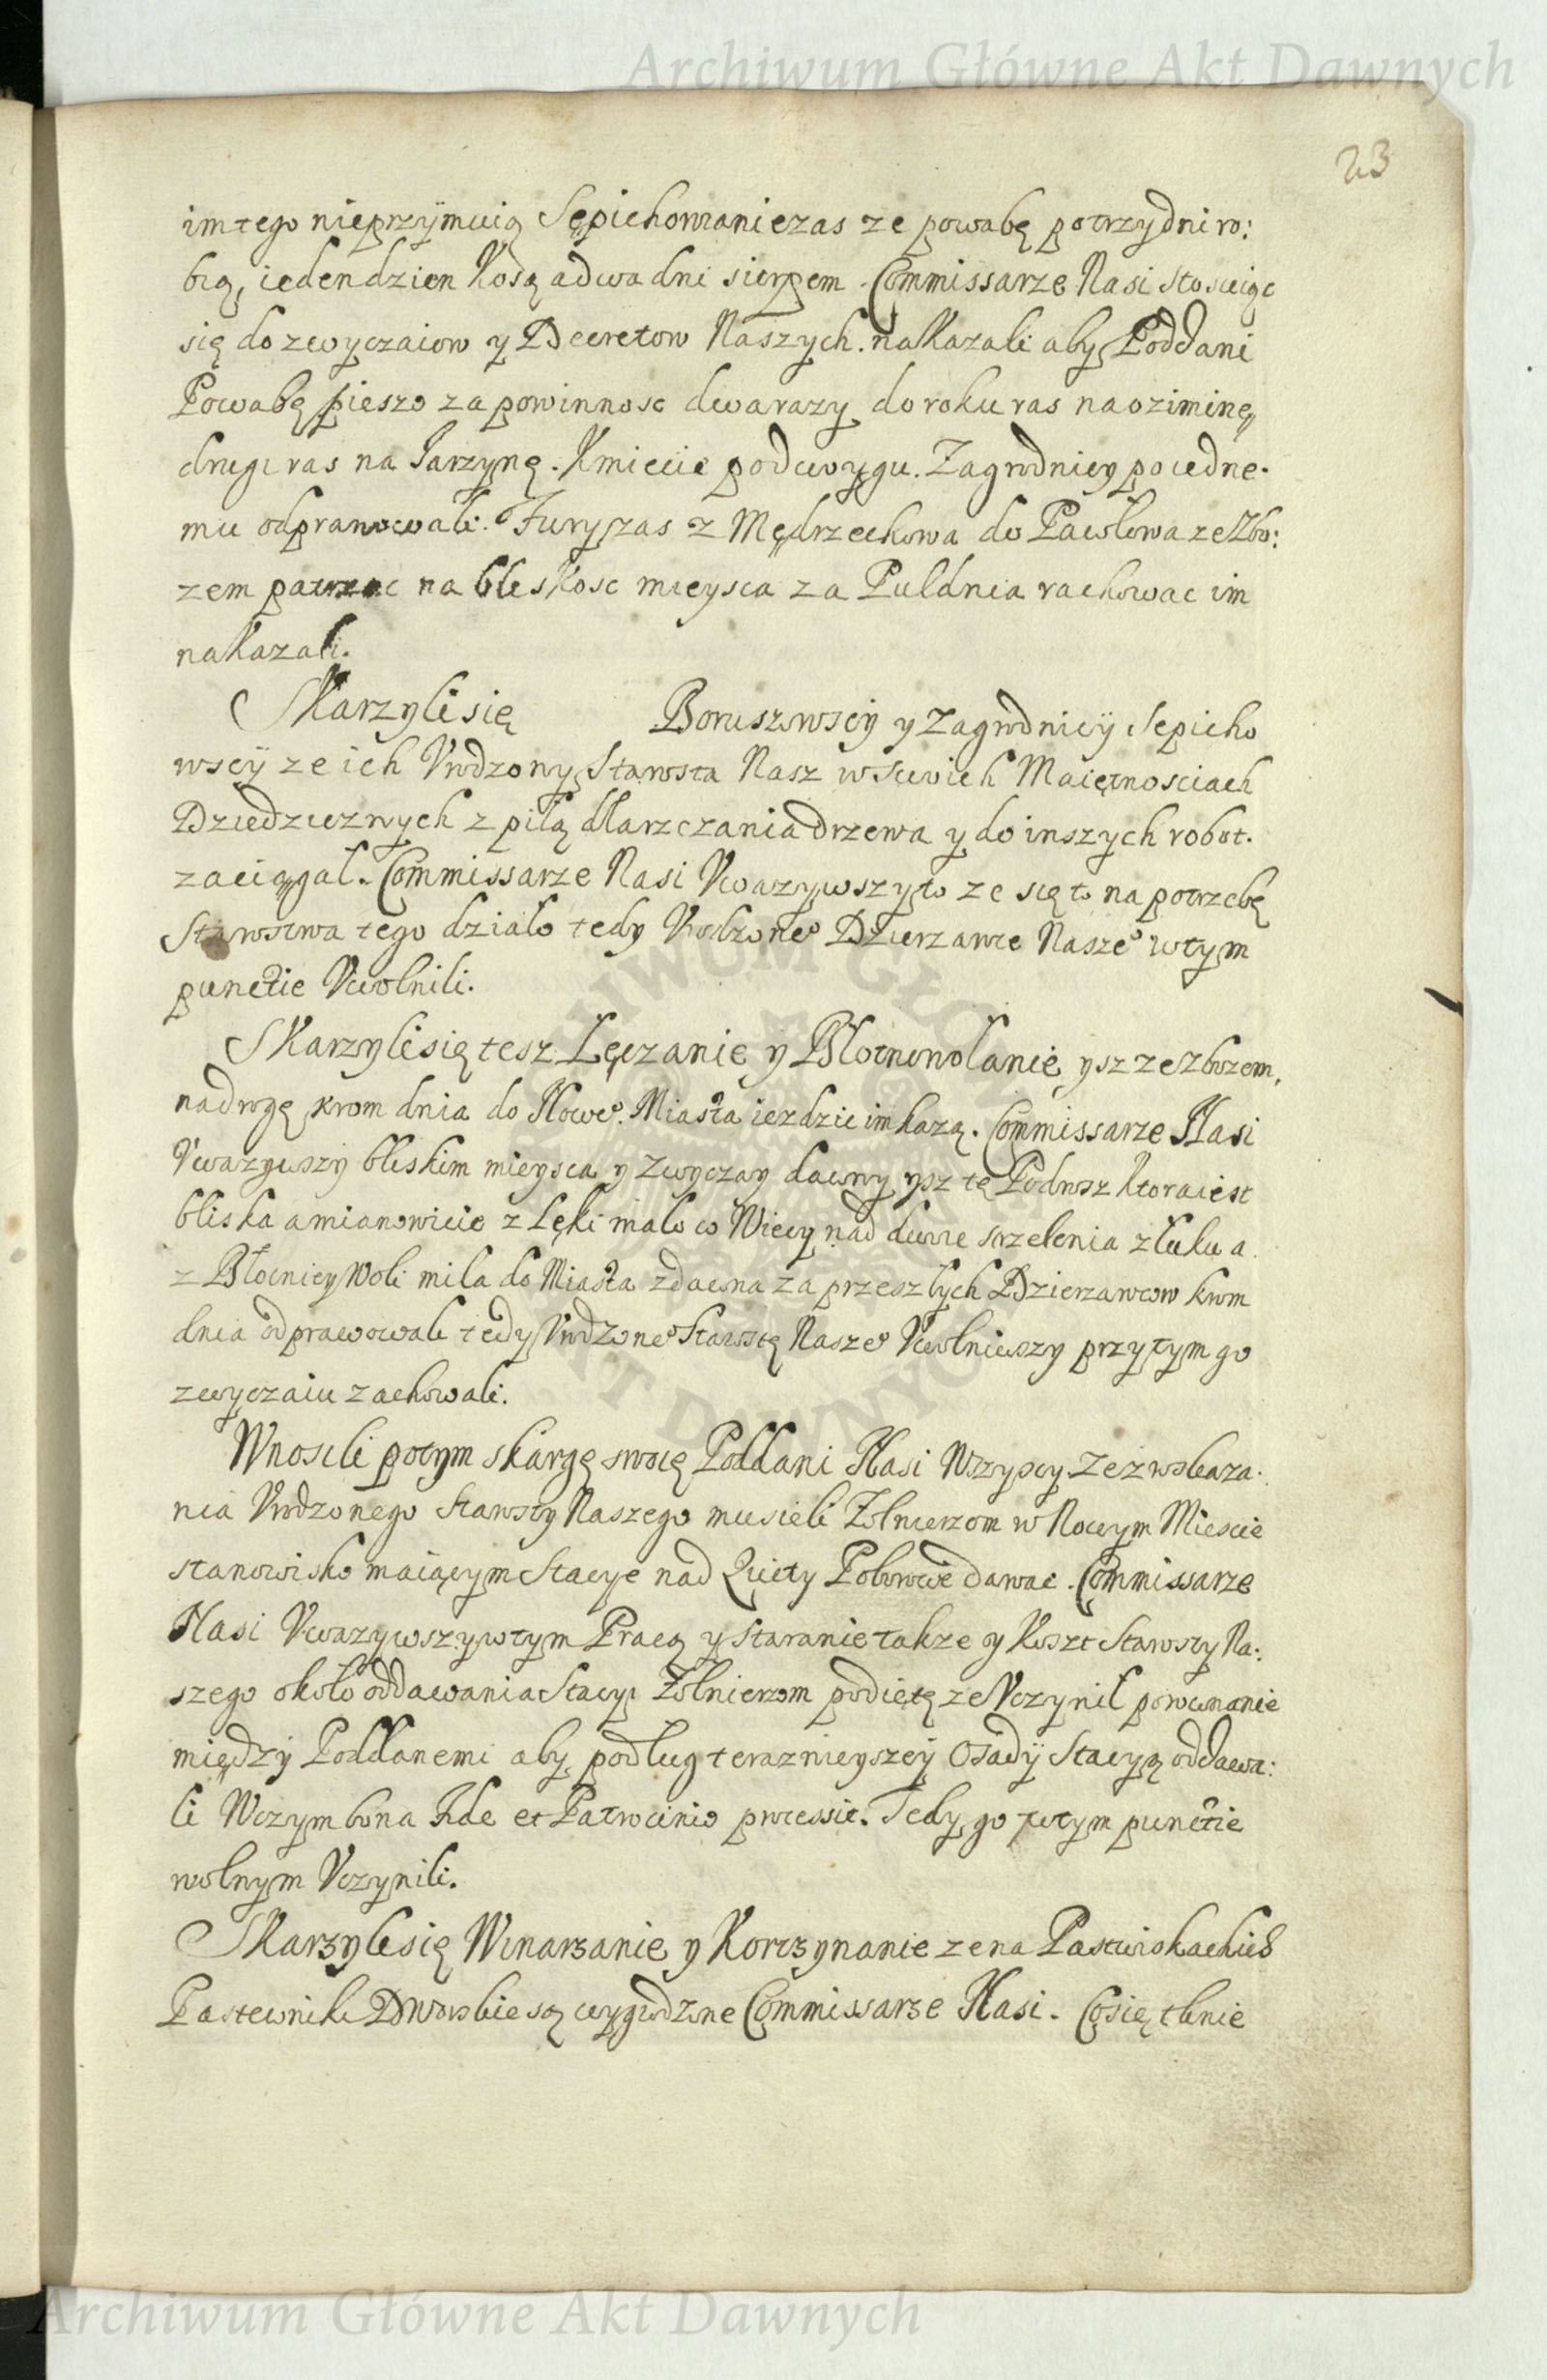 Archiwum Główne Akt Dawnych
23
im tego nieprzÿmuią Sępichowianie zas ze powabę potrzy dni ro:
bią, ieden dzien Kosą a dwa dni sierpem. Commissarze Nasi stosuiąc
się do zwyczaiow y Decretow Naszych. nakazali aby Poddani
Powabę pieszo za powinnosc dwa razy do roku ras na oziminę
drugi ras na Jarzynę. Kmiecie po dwoygu. Zagrodnicy po iedne.
mu odprawowali. Fury zas z Mędrzechowa do Pawłowa ze Zbo:
zem patrząc na bliskosc mieysca za Puldnia rachowac im
nakazali.
Skarzyli się Boruszowscÿ y Zagrodnicÿ Sepicho
wscÿ ze ich Vrodzony Starosta Nasz w Swoich Maiętnosciach
Dziedzicznych z piłą dla rzezania drzewa y do inszych robot.
zaciągal. Commissarze Nasi Vwazywszy to ze się to na potrzebę
Starostwa tego działo tedy Vrodzone° Dzierzawce Nasze° w tym
punctie Vwolnili.
Skarzyli się tesz Lęczanie ÿ Błotnowolanie ysz ze zbozem,
na drogę krom dnia do Nowe°. Miasta iezdzic im kazą. Commissarze Nasi
Vwazywszy bliskim mieysca y zwyczay dawny ysz tę Podwosz ktora iest
bliska a mianowicie z Lęki malo co Wiecy nad dwoie strzelenia z łuku a
z Błotnicy Woli mila do Miasta zdawna za przeszłych Dzierzawcow krom
dnia odprawowali tedy Vrodzone° Starostę Nasze° Vwolniwszy przy tym go
zwyczaiu zachowali.
Wnosili potym skargę swoię Poddani Nasi Wszyscy ze z wskaza.
nia Vrodzonego Starosty Naszego musieli Zolnierzom w Nowym Miescie
stanowisko maiącym Stacye nad Qwity Poborowe dawac. Commissarze
Nasi Vwazywszy w tym Pracą y staranie takze y Koszt Starosty Na:
szego około oddawania Stacyi Zolnierzom podiętą ze Vczynił porownanie
między Poddanemi aby podług teraznieyszeÿ Osadÿ Stacyą oddawa:
li W czym bona fide et Patrocinio processit. Tedy go w tym punctie
wolnym Vczynili.
Skarzyli się Winarzanie y Korczynanie ze na Pastwiskach ich
Pastewniki Dworskie są wygrodzone Commissarze Nasi. Co się tknie
Archiwum Główne Akt Dawnych